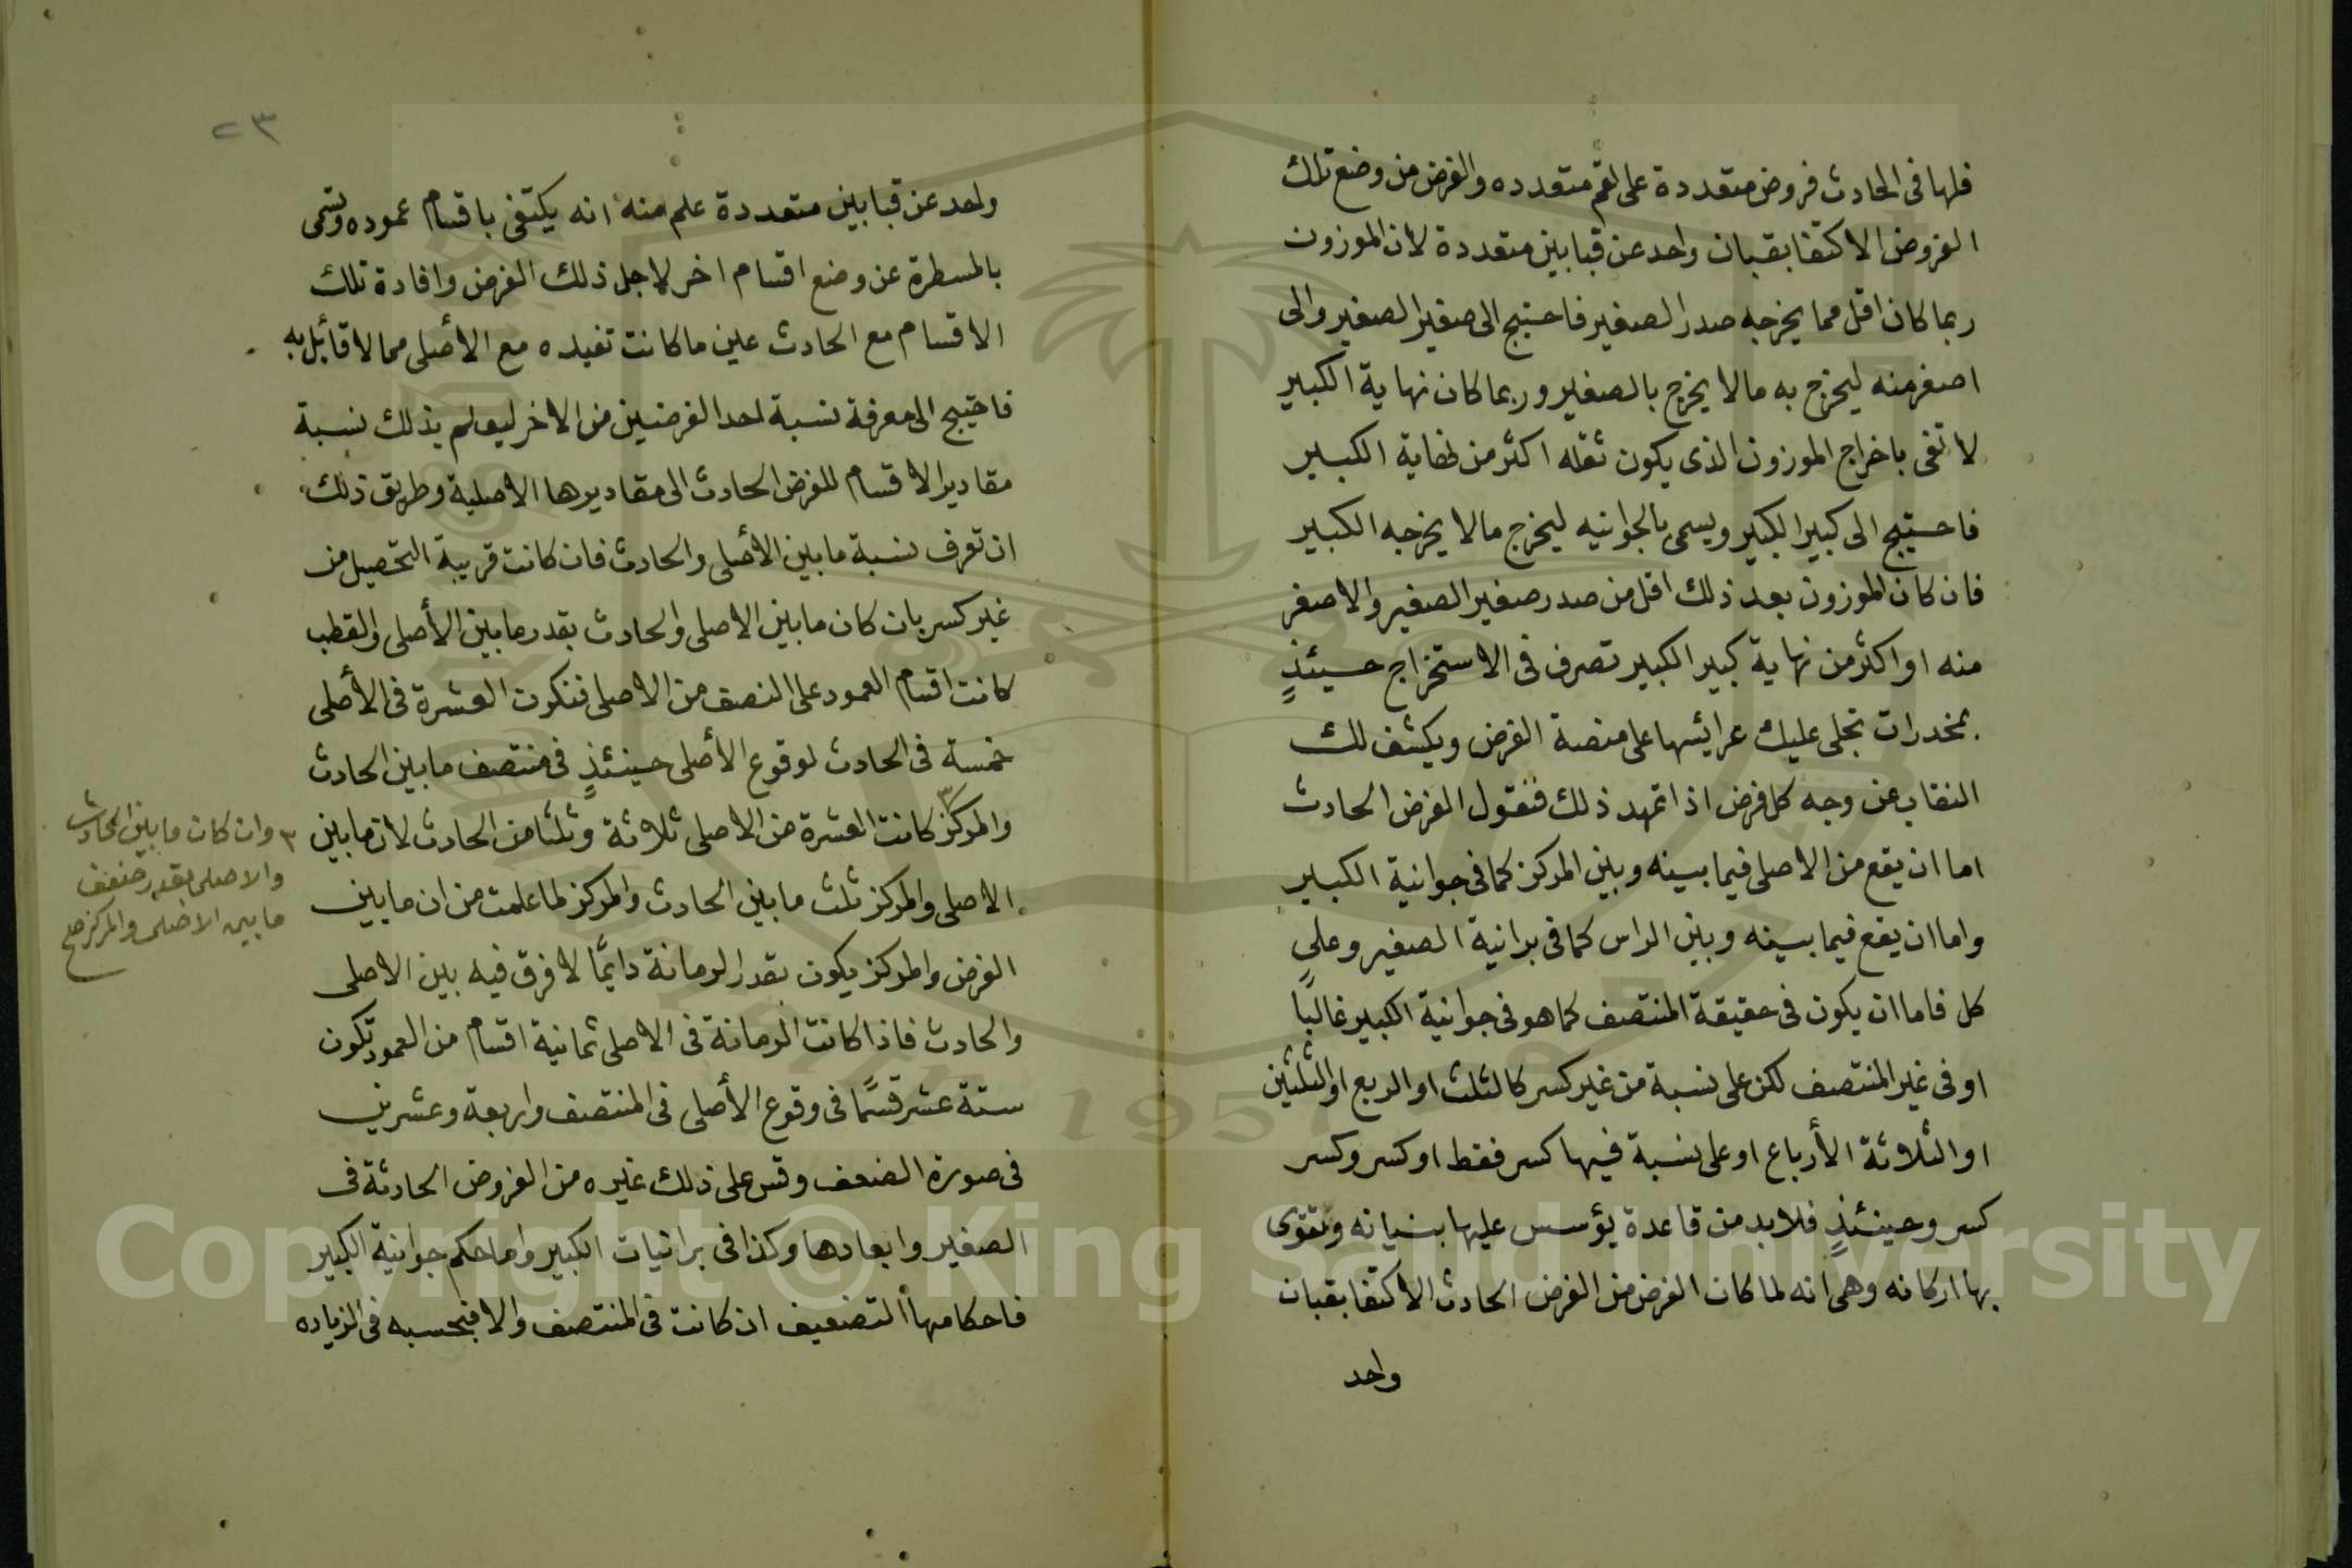 فلها فى الحادث فروض متعددة على لقم متعدده والغرض من وضع تلك
الفروض الاكتفا بقبان واحد عن قبابين متعددة لان الموزون
ربما كان اقل مما يخرجه صدر الصغير فاحتيج الى صغير الصغير والى
اصغر منه ليخرج به مالا يخرج بالصغير وربما كان نهاية الكبير
لا تفى باخراج الموزون الذى يكون ثقله اكثر من نهاية الكبير
فاحتيج الى كبير الكبير ويسمى بالجوانيه ليخرج مالا يخرجه الكبير
فان كان الموزون بعد ذلك اقل من صدر صغير الصغير والاصغر
منه او اكثر من نهاية كبير الكبير تصرف فى الاستخراج حينئذٍ
بمخدرات تجلى عليك عرايسها على منصة الفرض ويكشف لك
النقاب عن وجه كل فرض اذا تمهد ذلك فنقول الفرض الحادث
اما ان يقع من الاصلى فيما بينه وبين المركز كما فى جوانية الكبير
واما ان يقع فيما بينه وبين الراس كما فى برانية الصغير وعلى
كل فاما ان يكون فى حقيقة المنتصف كما هو فى جوانية الكبير غالبًا
او فى غير المنتصف لكن على نسبة من غير كسر كالثلث او الربع او الثلثين
او الثلاثة الأرباع او على نسبة فيها كسر فقط او كسر وكسر
كسر وحينئذٍ فلا بد من قاعدة يؤسس عليها بنيانه وتقوى
بها اركانه وهى انه لما كان الغرض من الفرض الحادث الاكتفا بقبان
واحد
٢٣
واحد عن قبابين متعددة علم منه انه يكتفى باقسام عموده وتسمى
بالمسطرة عن وضع اقسام اخر لاجل ذلك الفرض وافادة تلك
الاقسام مع الحادث عين ما كانت تفيده مع الأصلى مما لا قائل به
فاحتيج الى معرفة نسبة احد الفرضين من الاخر ليعلم بذلك نسبة
مقادير الاقسام للفرض الحادث الى مقاديرها الاصلية وطريق ذلك
ان تعرف نسبة ما بين الأصلى والحادث فان كانت قريبة التحصيل من
غير كسر بان كان ما بين الاصلى والحادث بقدر ما بين الأصلى والقطب
كانت اقسام العمود على النصف من الاصلى فتكون العشرة فى الأصلى
خمسة فى الحادث لوقوع الأصلى حينئذٍ فى منتصف ما بين الحادث
والمركز ٣ كانت العشرة من الاصلى ثلاثة وثلثا من الحادث لان ما بين
الاصلى والمركز ثلث ما بين الحادث والمركز لما علمت من ان ما بين
الفرض والمركز يكون بقدر الرمانة دايمًا لا فرق فيه بين الاصلى
والحادث فاذا كانت الرمانة فى الاصلى ثمانية اقسام من العمود تكون
ستة عشر قسمًا فى وقوع الأصلى فى المنتصف واربعة وعشرين
فى صورة الضعف وقس على ذلك غيره من الفروض الحادثة فى
الصغير وابعادها وكذا فى برانيات الكبير واما حكم جوانية الكبير
فاحكامها التضعيف ان كانت فى المنتصف والا فبحسبه فى الزياده
٣ وان كان ما بين الحادث
والاصلى بقدر ضعف
ما بين الاصلى والمركز صح
Copyright © King Saud University
1957